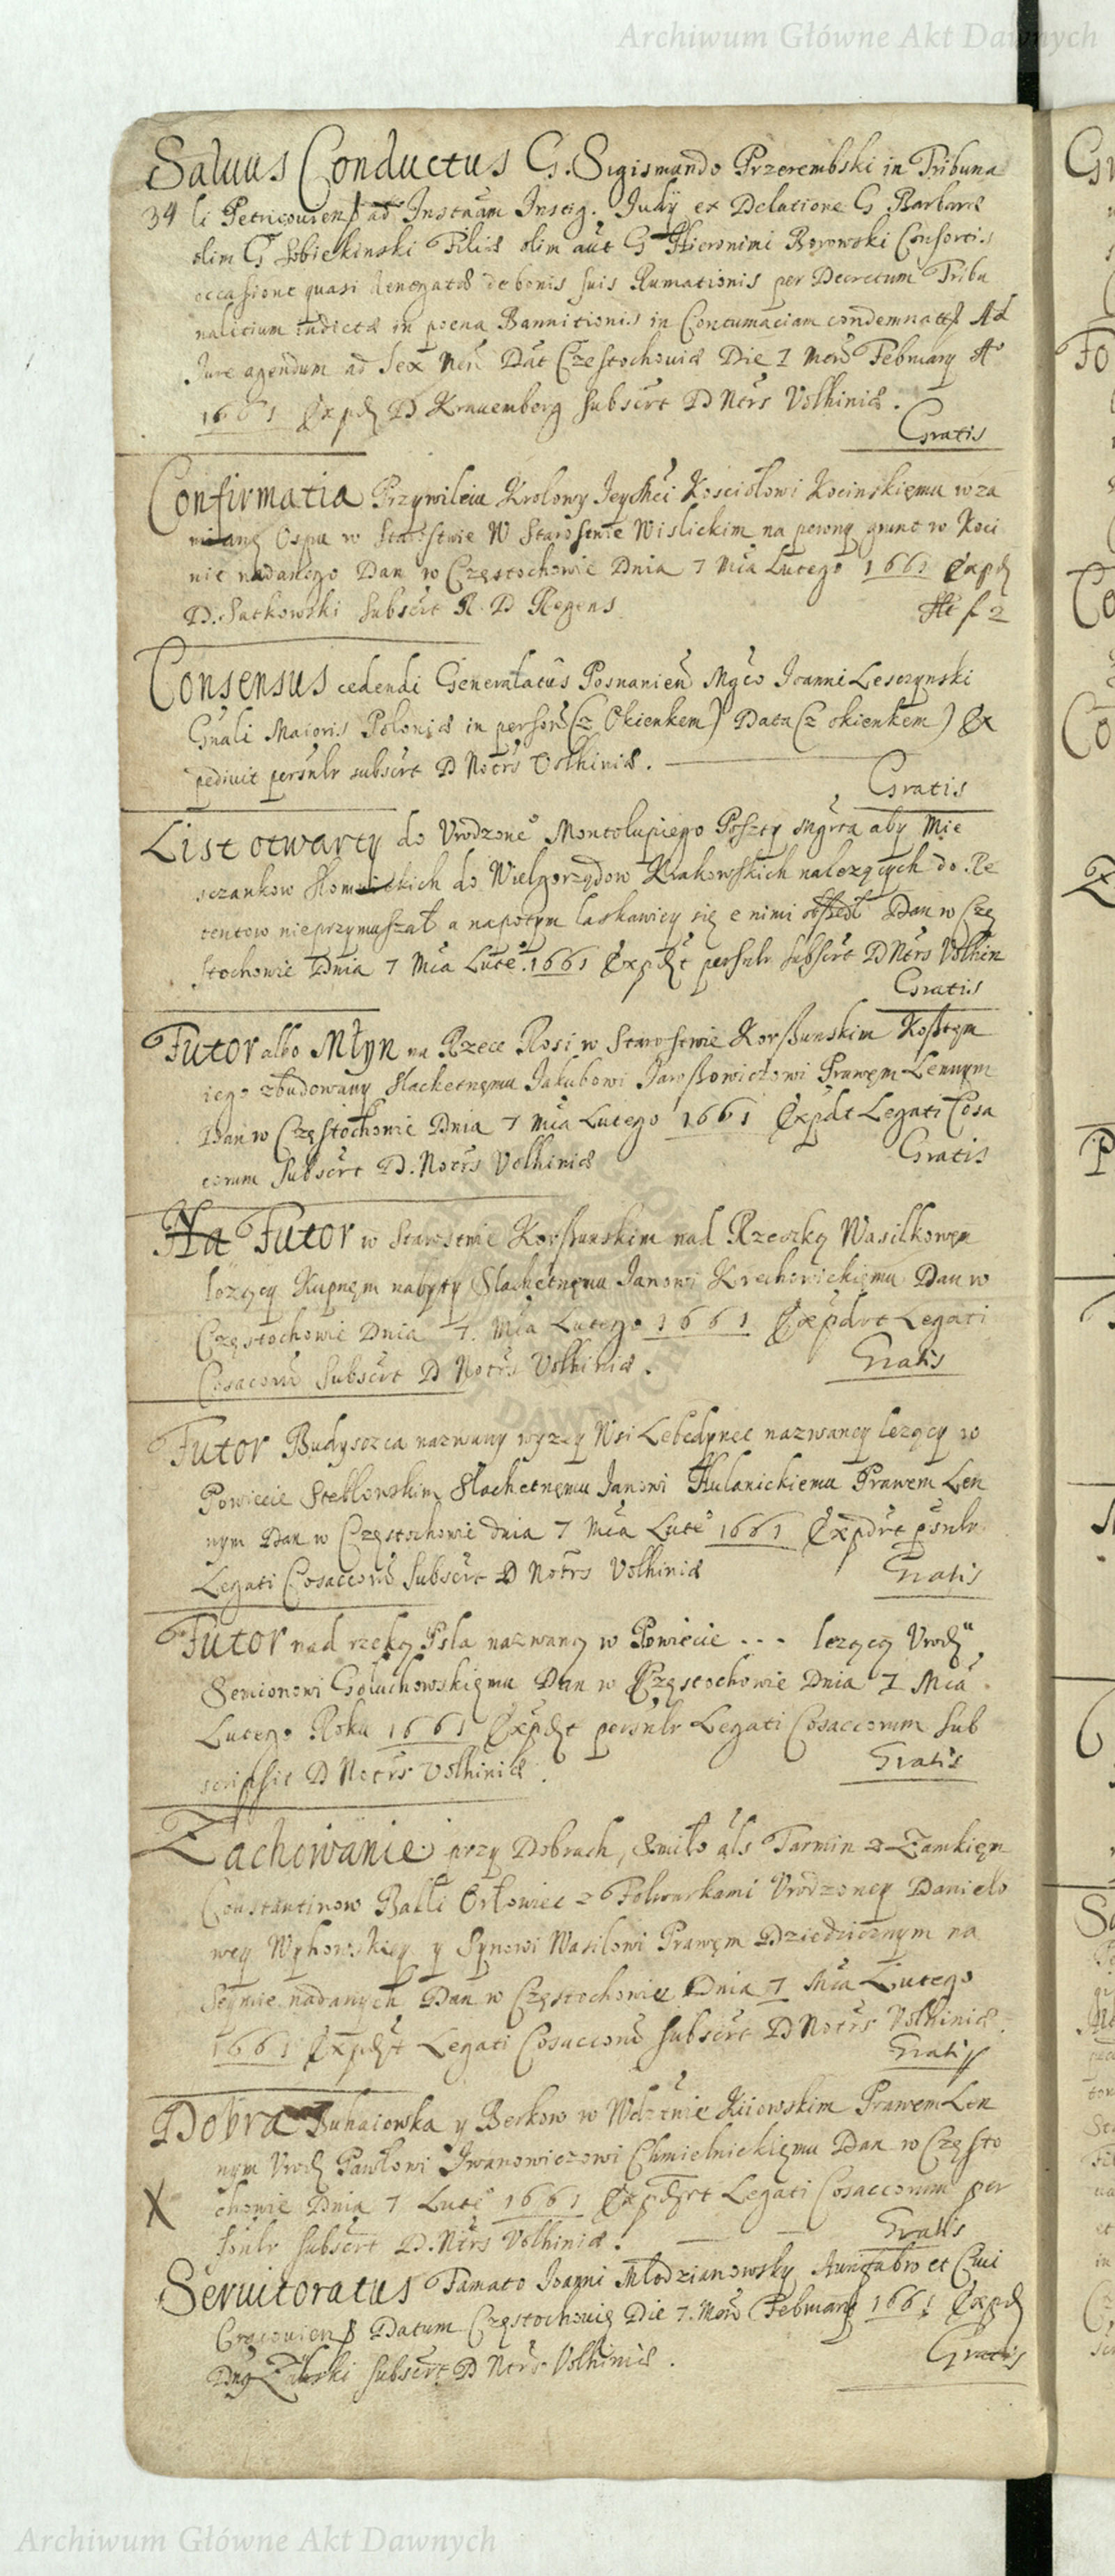 Archiwum Główne Akt Dawnych
Saluus Conductus G. Sigismundo Przerembski in Tribuna
34 li Petricouien ad Instnam Instig. Judy ex Delatione G Barbaræ
olim G Sobiekinski Filiæ olim aut G Hieronimi Borowski Consortis
occasione quasi denegatæ de bonis suis Rumationis per Decretum Tribu
nalitium indictæ in poena Bannitionis in Contumaciam condemnatt Ad
Jure agendum ad Sex Men Dat Czestochouiæ Die 7 Mens February Ao
1661 Expd D Krauemberg Subscrt D Ntrs Volhiniæ.
Gratis
Confirmatia Przywileiu Krolowy Jeymci Kosciołowi Kocinskięmu w za
mianę Ospu w Starostwie W Starostwie Wislickim na pewny grunt w Koci
nie nadanego Dan w Częstochowie Dnia 7 Mca Lutego 1661 Expd
D. Sutkowski Subscrt R. D Regens
Consensus cedendi Generalatus Posnanien Mgco Joanni Lesczynski
Gnali Maioris Poloniæ in person (z Okienkem) Data (z okienkem) Ex
pediuit persnlr subscrt D Notrs Volhiniæ.
Gratis
List otwarty do Vrodzone° Montolupiego Poszty Mgrta aby Mie
sczankow Słomnickich do Wielgorządow Krakowskich należących do Re
tentow nieprzymuszał a napotym łaskawiey się z nimi obszedł Dan w Czę
stochowie Dnia 7 Mca Lute°. 1661 Expdt persnlr subscrt D Ntrs Volhin
Gratis
Futor albo Młyn na Rzece Rosi w Starostwie Korsunskim Kosztem
iego zbudowany Slachetnęmu Jakubowi Jarossowiczowi Prawęm Lennym
Dan w Częstochowie Dnia 7 Mca Lutego 1661 Expdt Legati Cosa
corum Subscrt D. Notrs Volhiniæ
Gratis
Na Futor w Starostwie Korsunskim nad Rzeczką Wasilkowęm
leżący Kupnęm nabyty Slachetnęmu Janowi Krechowickięmu Dan w
Częstochowie Dnia 7. Mca Lutego 1661 Expdrt Legati
Cosacorum Subscrt D Notrs Volhiniæ.
Gratis
Futor Budyscza nazwany wyzey Wsi Lebedynec nazwaney lezący w
Powiecie Steblowskim Slachetnęmu Janowi Hulanickiemu Prawem Len
nym Dan w Częstochowie dnia 7 Mca Lute° 1661 Expdrt psnlr
Legati Cosaccorum Subscrt D Notrs Volhiniæ
Gratis
Futor nad rzeką Psla nazwaną w Powiecie - - - lezący Vrodz
Semionowi Gołuchowskięmu Dan w Częstochowie Dnia 7 Mca
Lutego Roku 1661 Expdt persnlr Legati Cosaccorum Sub
scripsit D Notrs Volhiniæ.
Gratis
Zachowanie przy Dobrach, Smiło als Tarmin z Zamkięm
Constantinow Bakli Orłowiec z Folwarkami Vrodzoney Danieło
wey Wyhowskięy y Synowi Wasilowi Prawęm Dziedzicznym na
Seymie nadanych Dan w Częstochowie Dnia 7 Mca Lutego
1661 Expdt Legati Cosaccorum Subscrt D Notrs Volhiniæ.
Gratis
Dobra Suhaiowka y Berkow w Wdztwie Kiiowskim Prawem Len
nym Vrodz Pawłowi Iwanowiczowi Chmielnickięmu Dan w Często
X chowie Dnia 7 Lute° 1661 Expdrt Legati Cosaccorum per
sonlr subscrt D. Ntrs Volhiniæ.
Gratis
Seruitoratus Famato Joanni Młodzianowsky Aurifabro et Ciui
Cracouien Datum Częstochouię Die 7. Mens February 1661 Expd
Dng Załuski Subscrt D Ntrs Volhiniæ.
Gratis
Archiwum Główne Akt Dawnych